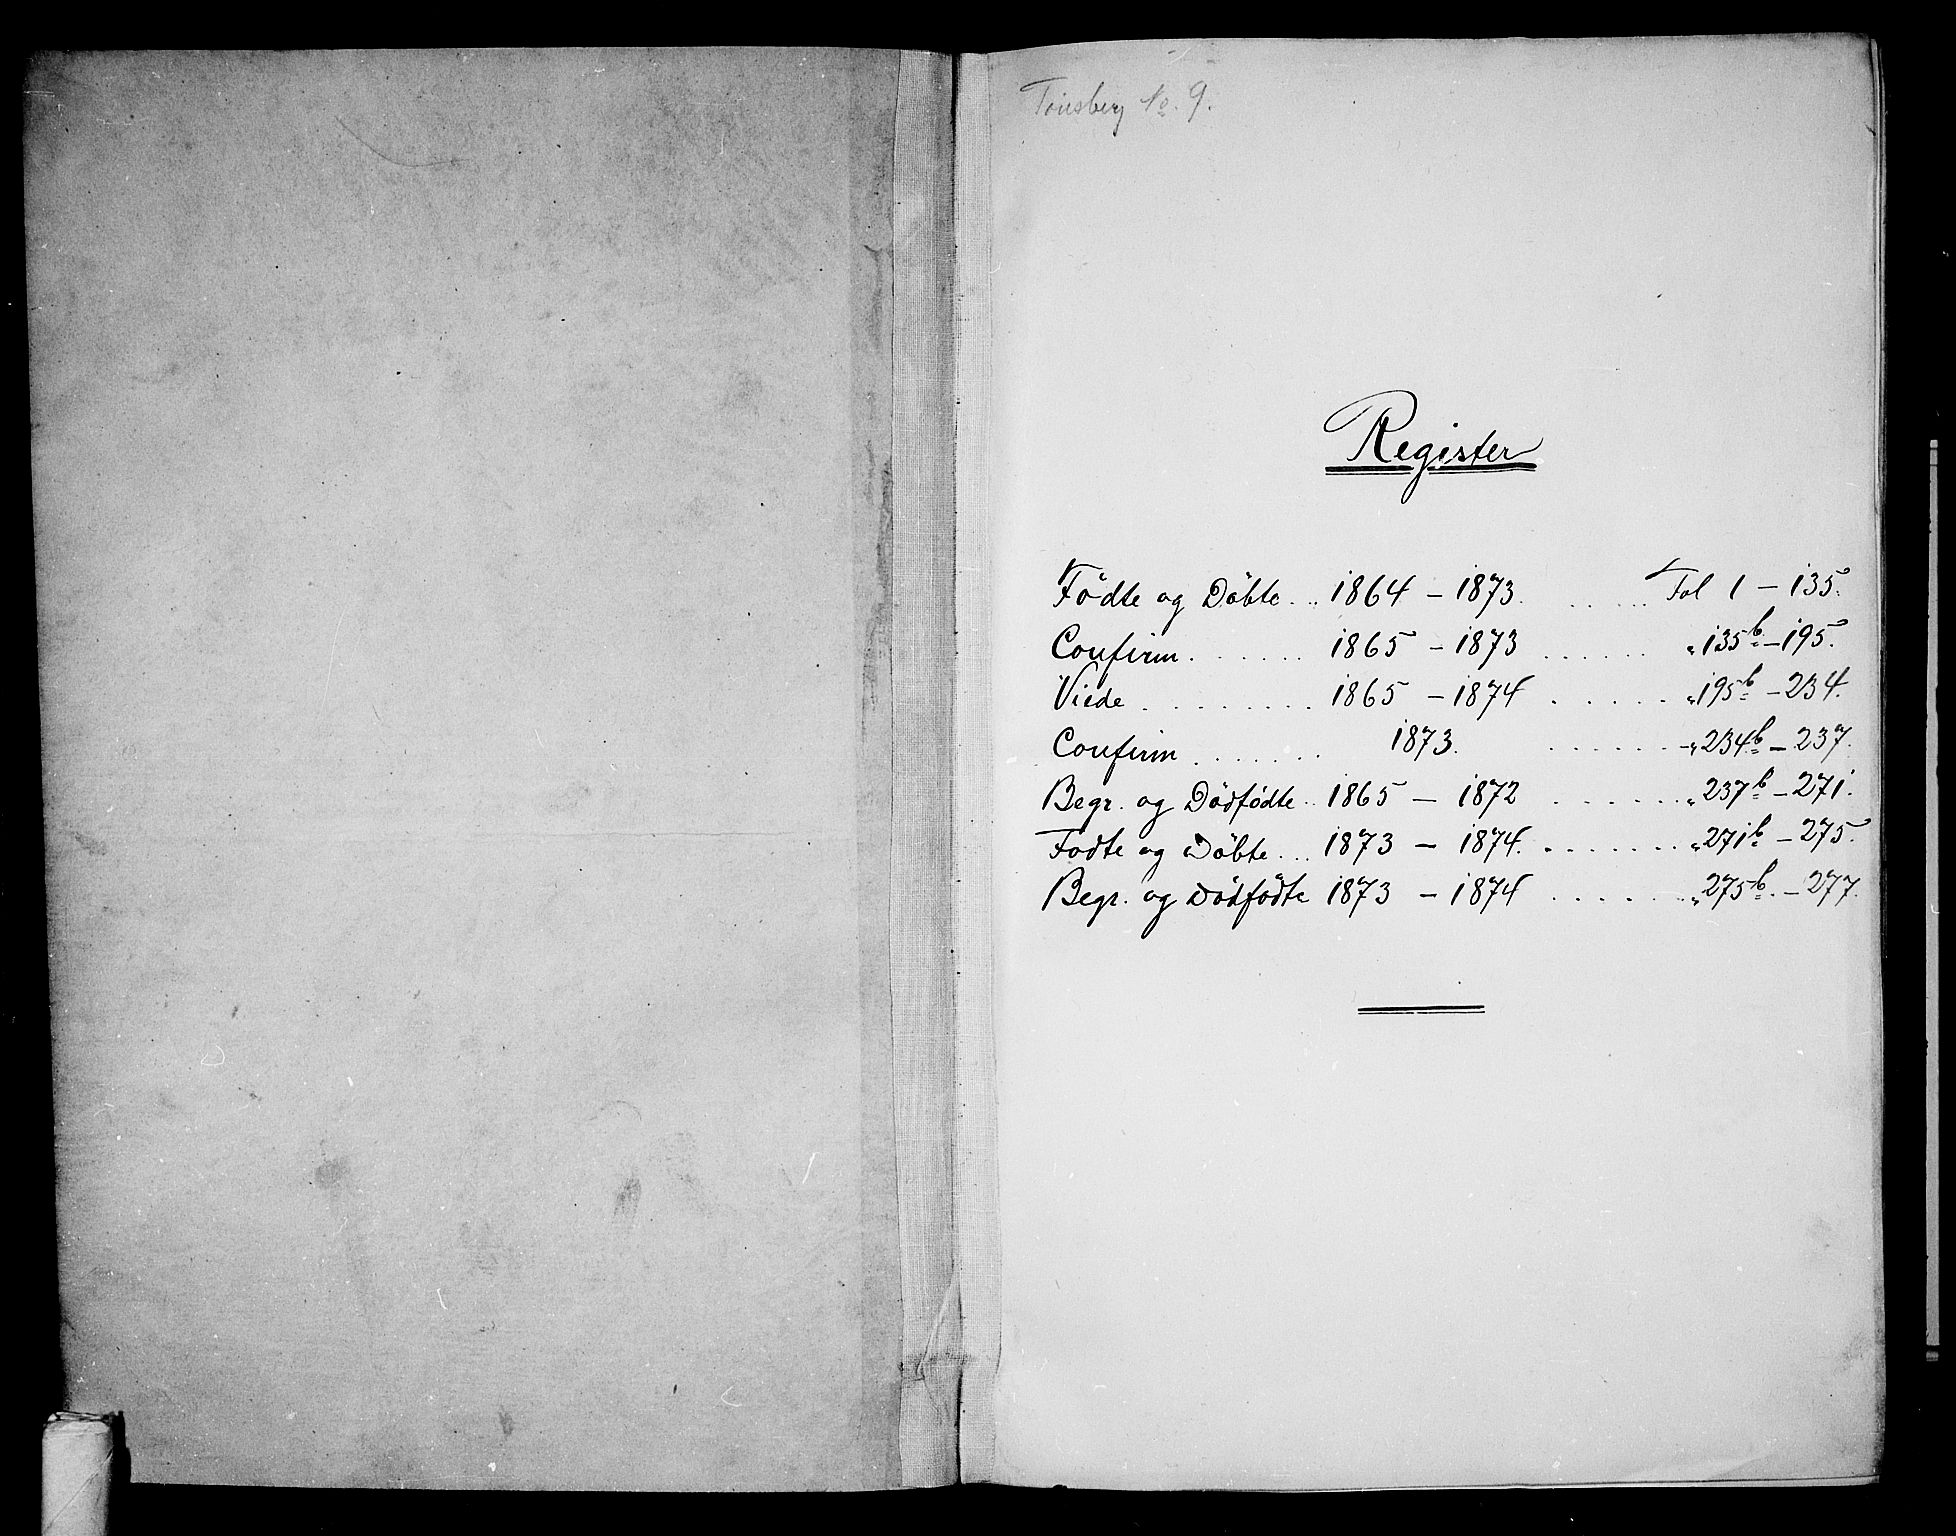 Tönsberg No. 9.
Register
Födte og Döbte . . . 1864 – 1873. . . . . . . Fol 1 – 135.
Confirm. . . . . . . 1865 – 1873 . . . . . . „ 135b – 195.
Viede . . . . . . . . . 1865 – 1874 . . . . . . „ 195b – 234.
Confirm . . . . . . . 1873. . . . . . . . „ 234b – 237.
Begr. og Dödfödte . . 1865 – 1872 . . . . . . „ 237b – 271.
Fodte og Döbte . . . 1873 – 1874. . . . . . . „ 271b – 275.
Begr. og Dödfödte 1873 – 1874 . . . . . . „ 275b. – 277.